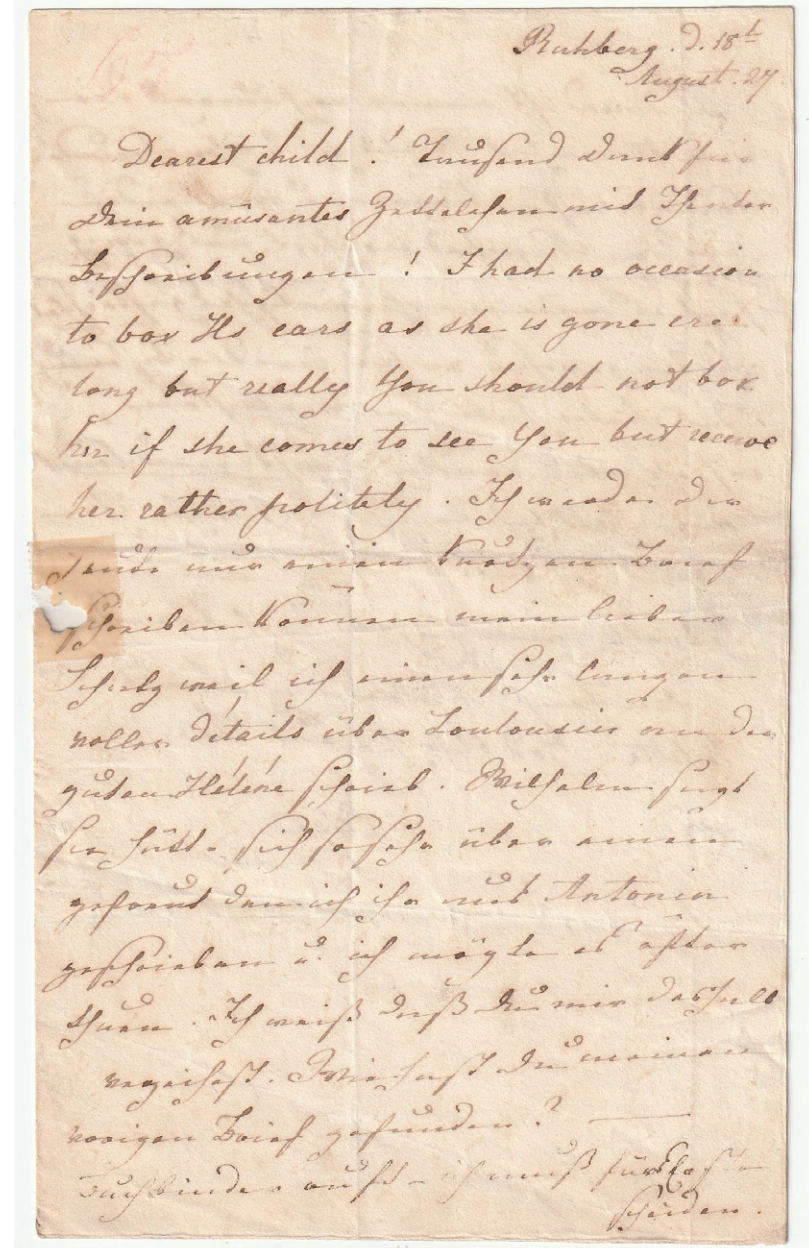 Ruhberg. d. 18t
August. 27
Dearest child! Tausend Dank für
Dein amüsantes Zettelchen mit Theater
Beschreibungen! I had no occasion
to box Hs ears as she is gone ere
long but really You should not box
her if she comes to see You but receive
her rather politely. Ich werde Dir
heute nur einen kurzen Brief
schreiben können mein lieber
Schatz weil ich einen sehr langen
voller détails über Loulousin an die
guten Héléne schrieb. Wilhelm sagt
sie hätte sich so sehr über einen
gefreut den ich ihr aus Antonin
geschrieben u. ich mögte es öfter
thuen. Ich weiß daß Du mir deshalb
verzeihest. Wie hast Du meinen
vorigen Brief gefunden? —
Buchbinder ruft – ich muß für Erste
scheiden.